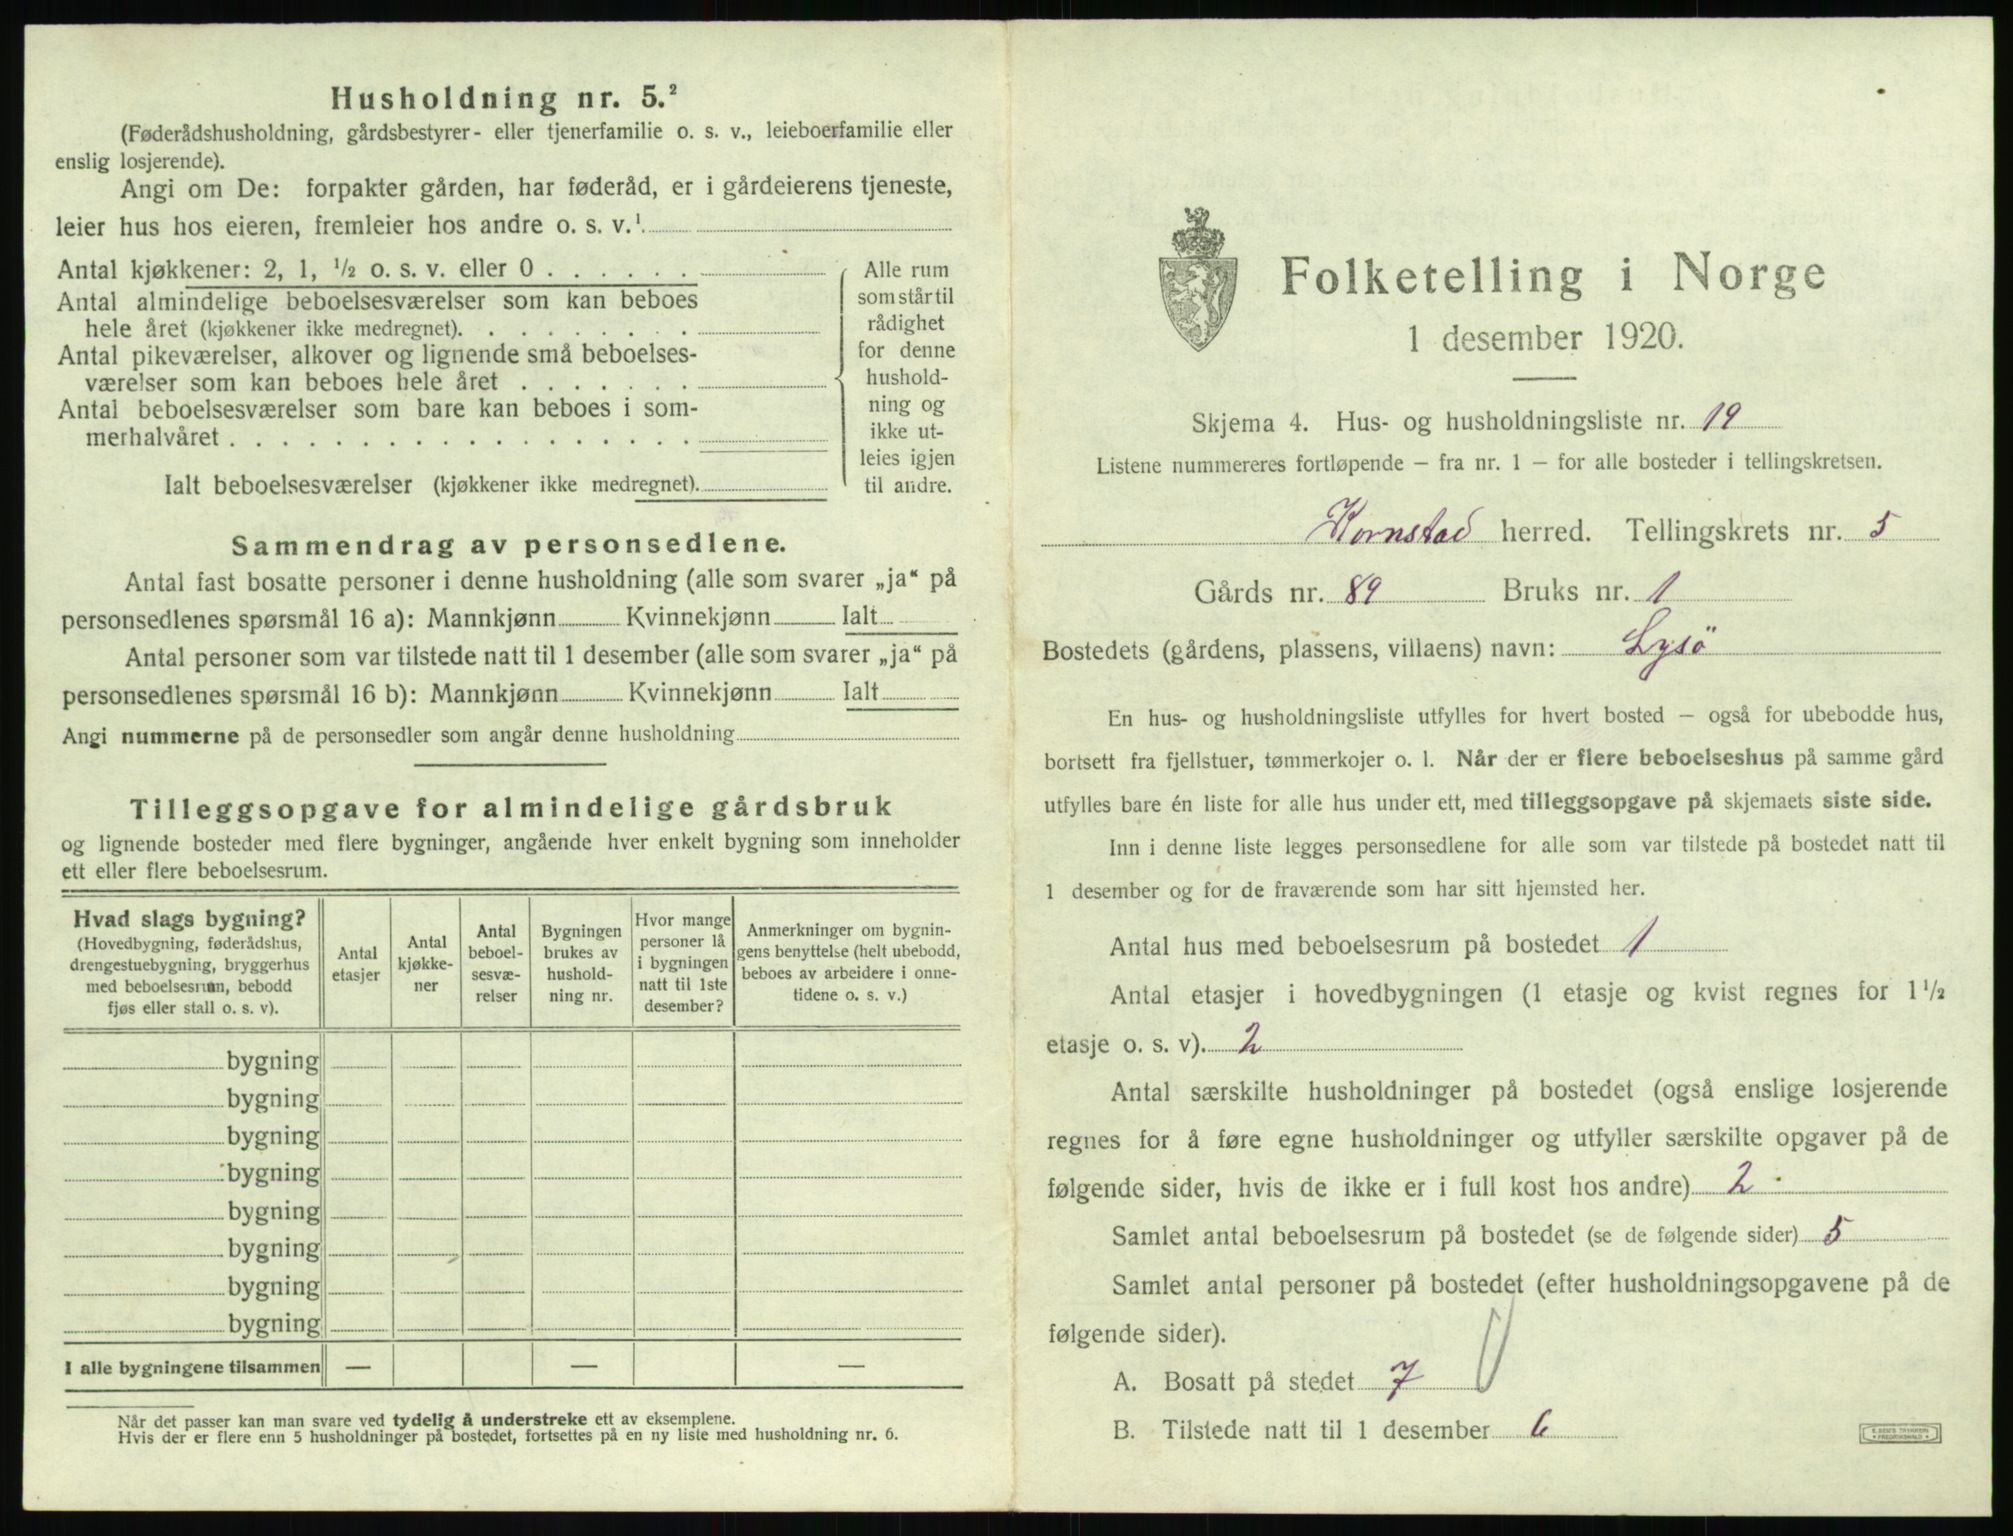 Husholdning nr. 5.²
(Føderådshusholdning, gårdsbestyrer- eller tjenerfamilie o. s. v., leieboerfamilie eller
enslig losjerende).
Angi om De: forpakter gården, har føderåd, er i gårdeierens tjeneste,
leier hus hos eieren, fremleier hos andre o. s. v.¹
Antal kjøkkener: 2, 1, ½ o. s. v. eller 0 . . . . . .
Antal almindelige beboelsesværelser som kan beboes
hele året (kjøkkener ikke medregnet). . . . . . . . .
Antal pikeværelser, alkover og lignende små beboelses-
værelser som kan beboes hele året . . . . . . .
Antal beboelsesværelser som bare kan beboes i som-
merhalvåret . . . . . . . . . . . . . . . . . .
Ialt beboelsesværelser (kjøkkener ikke medregnet).
Alle rum
som står til
rådighet
for denne
hushold-
ning og
ikke ut-
leies igjen
til andre.
Sammendrag av personsedlene.
Antal fast bosatte personer i denne husholdning (alle som svarer „ja“ på
personsedlenes spørsmål 16 a): Mannkjønn Kvinnekjønn Ialt
Antal personer som var tilstede natt til 1 desember (alle som svarer „ja“ på
personsedlenes spørsmål 16 b): Mannkjønn Kvinnekjønn Ialt
Angi nummerne på de personsedler som angår denne husholdning
Tilleggsopgave for almindelige gårdsbruk
og lignende bosteder med flere bygninger, angående hver enkelt bygning som inneholder
ett eller flere beboelsesrum.
Hvad slags bygning?
(Hovedbygning, føderådshus,
drengestuebygning, bryggerhus
med beboelsesrum, bebodd
fjøs eller stall o. s. v).
Antal
etasjer
Antal
kjøkke-
ner
Antal
beboel-
sesvæ-
relser
Bygningen
brukes av
hushold-
ning nr.
Hvor mange
personer lå
i bygningen
natt til 1ste
desember?
Anmerkninger om bygnin-
gens benyttelse (helt ubebodd,
beboes av arbeidere i onne-
tidene o. s. v.)
bygning
bygning
bygning
bygning
bygning
bygning
bygning
bygning
I alle bygningene tilsammen — — —
Når det passer kan man svare ved tydelig å understreke ett av eksemplene.
Hvis der er flere enn 5 husholdninger på bostedet, fortsettes på en ny liste med husholdning nr. 6.
Folketelling i Norge
1 desember 1920.
Skjema 4. Hus- og husholdningsliste nr. 19
Listene nummereres fortløpende — fra nr. 1 — for alle bosteder i tellingskretsen.
Kornstad herred. Tellingskrets nr. 5
Gårds nr. 89 Bruks nr. 1
Bostedets (gårdens, plassens, villaens) navn: Lysö
En hus- og husholdningsliste utfylles for hvert bosted — også for ubebodde hus,
bortsett fra fjellstuer, tømmerkojer o. l. Når der er flere beboelseshus på samme gård
utfylles bare én liste for alle hus under ett, med tilleggsopgave på skjemaets siste side.
Inn i denne liste legges personsedlene for alle som var tilstede på bostedet natt til
1 desember og for de fraværende som har sitt hjemsted her.
Antal hus med beboelsesrum på bostedet 1
Antal etasjer i hovedbygningen (1 etasje og kvist regnes for 1½
etasje o. s. v). 2
Antal særskilte husholdninger på bostedet (også enslige losjerende
regnes for å føre egne husholdninger og utfyller særskilte opgaver på de
følgende sider, hvis de ikke er i full kost hos andre) 2
Samlet antal beboelsesrum på bostedet (se de følgende sider) 5
Samlet antal personer på bostedet (efter husholdningsopgavene på de
følgende sider).
A. Bosatt på stedet 7
B. Tilstede natt til 1 desember 6